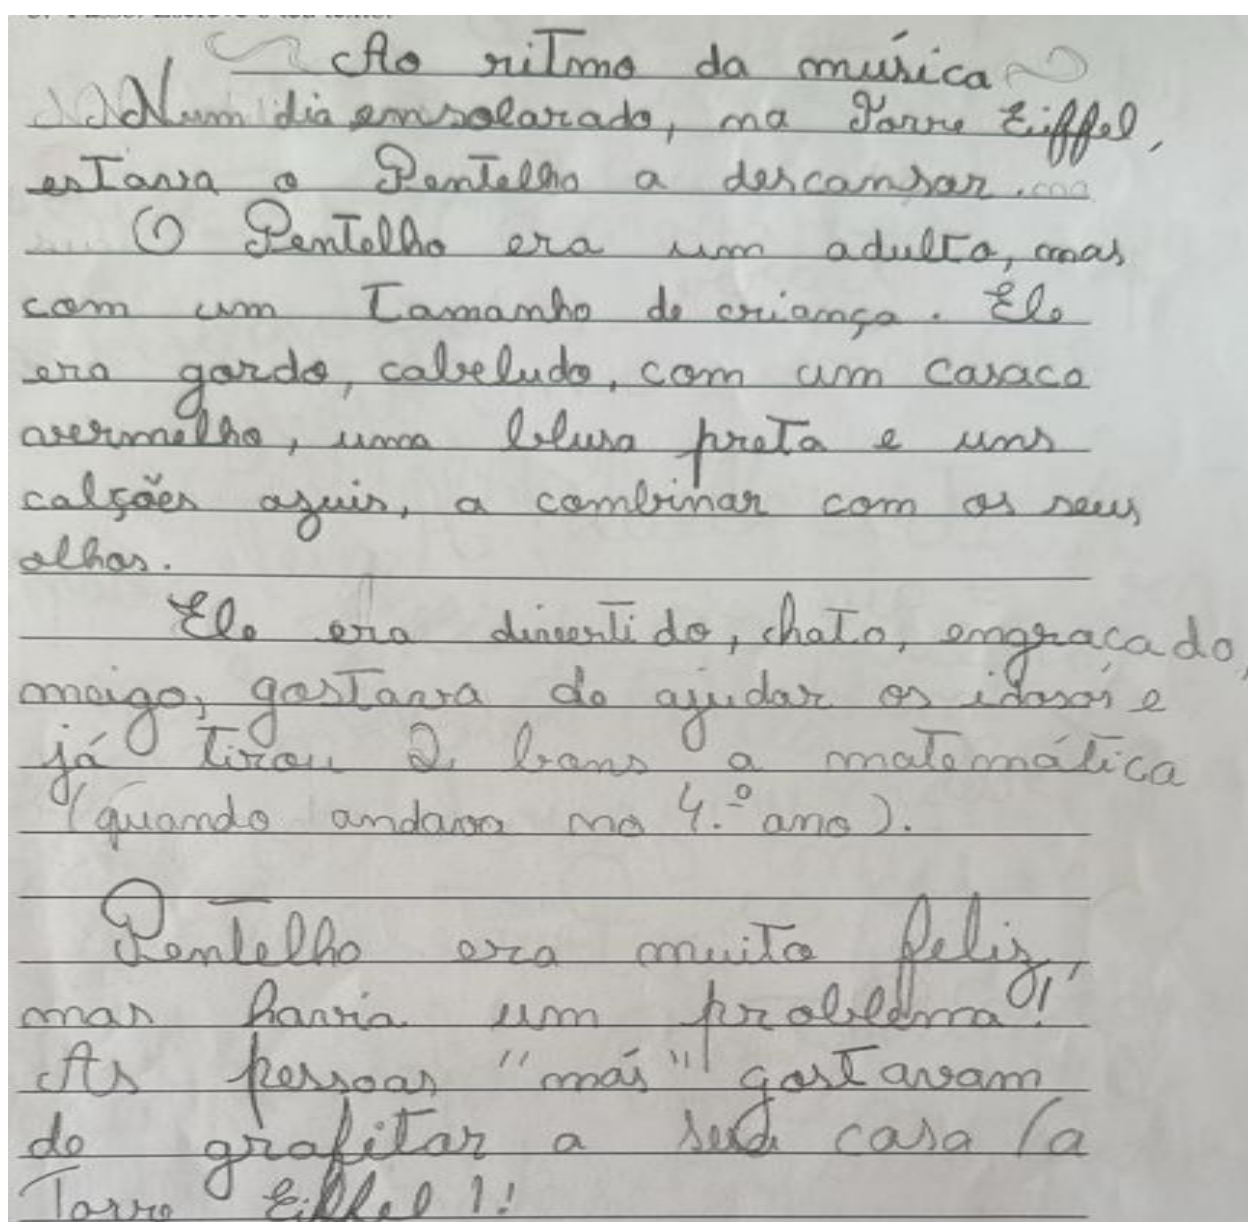 Ao ritmo da música
Num dia ensolarado, na Torre Eiffel,
estava o Pentelho a descansar.
O Pentelho era um adulto, mas
com um tamanho de criança. Ele
era gordo, cabeludo, com um casaco
avermelho, uma blusa preta e uns
calções azuis, a combinar com os seus
olhos.
Ele era divertido, chato, engraçado,
meigo, gostava de ajudar os idosos e
já tirou 2 bons a matemática
(quando andava no 4.º ano).
Pentelho era muito feliz,
mas havia um problema!
As pessoas "más" gostavam
de grafitar a sua casa (a
Torre Eiffel)!